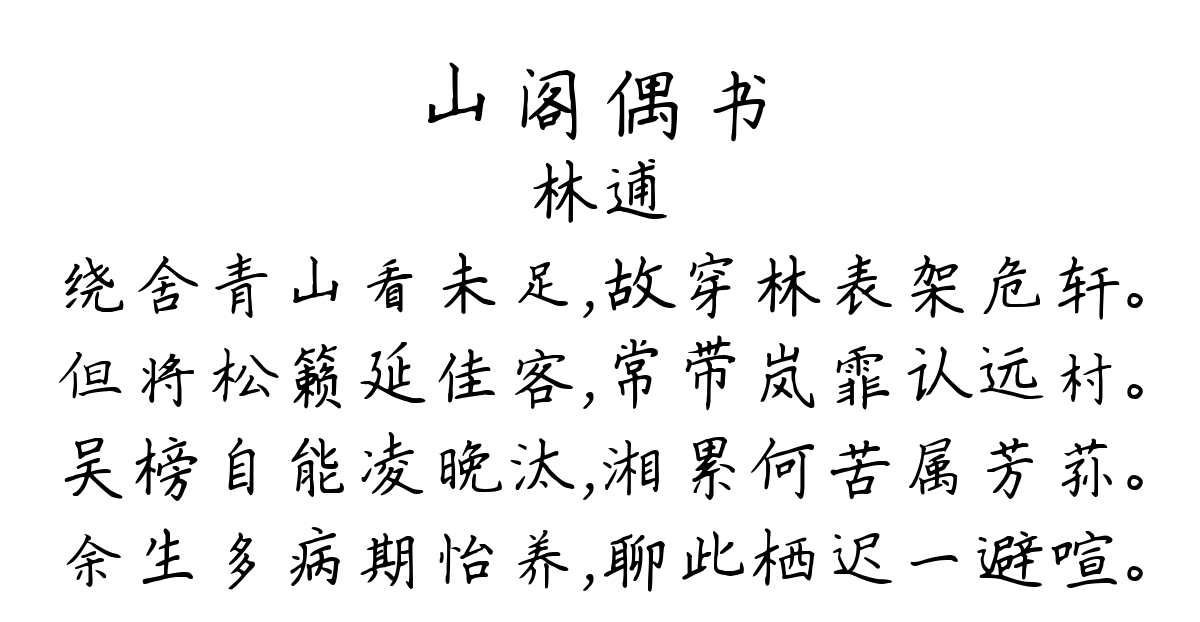 山阁偶书
林逋
绕舍青山看未足,故穿林表架危轩。
但将松籁延佳客,常带岚霏认远村。
吴榜自能凌晚汰,湘累何苦属芳荪。
余生多病期恬养,聊此栖迟一避喧。